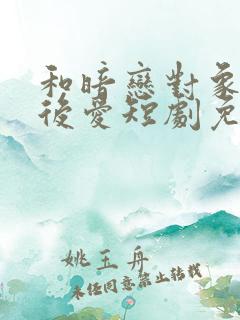 和暗戀對象
後愛短劇免
姚玉舟
未任同意禁止转载